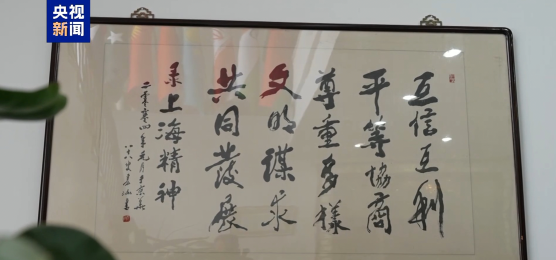 央视
新闻
互信互利
平等协商
尊重多様
文明谋求
共同發展
录上海精神
二零零四年元月